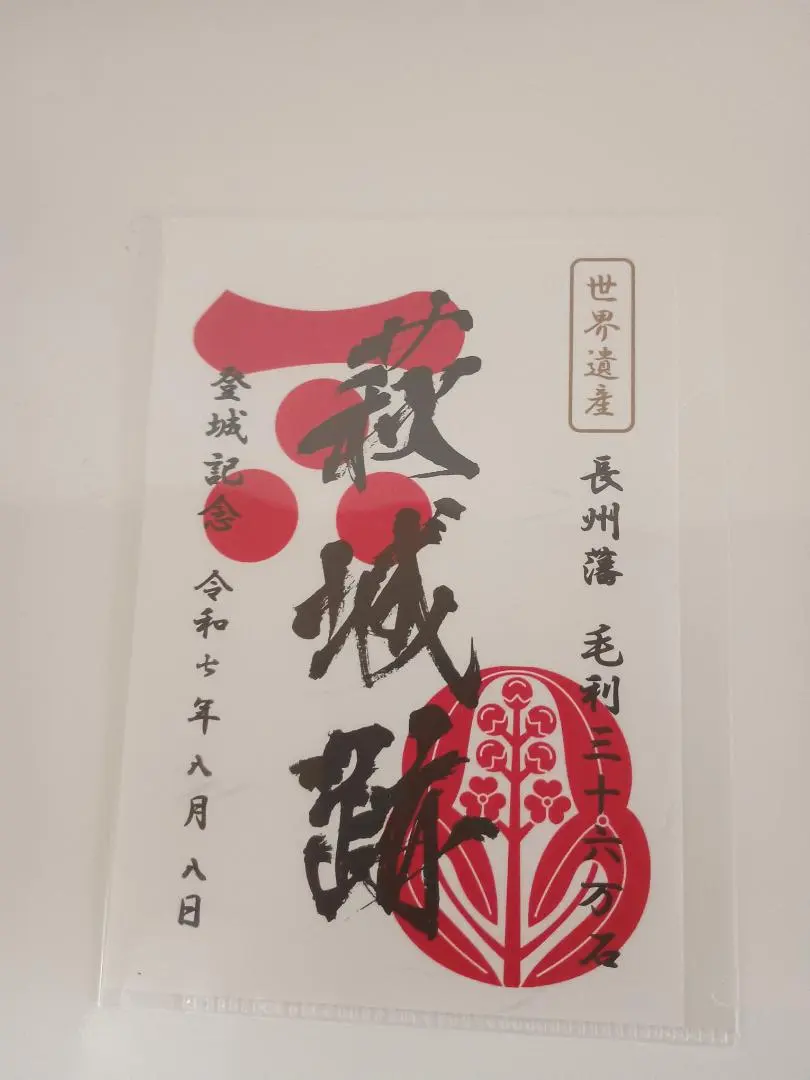 世界遺産
長州藩 毛利三十六万石
萩城跡
登城記念 令和七年八月八日